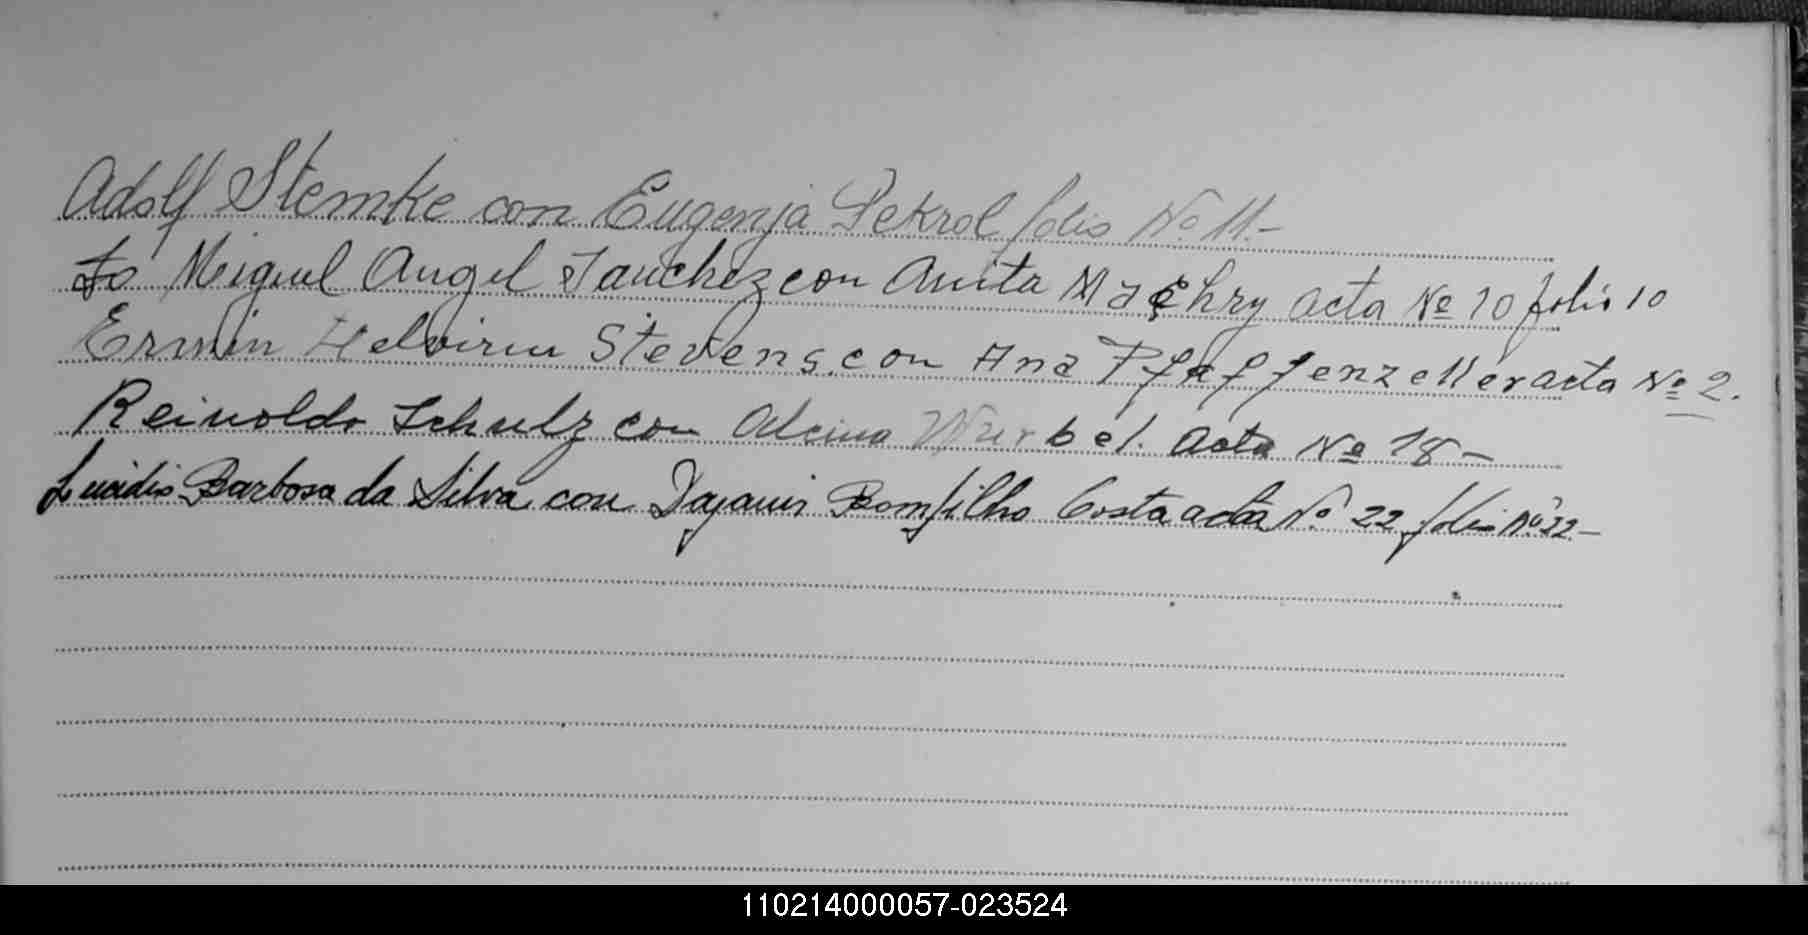 Adolf Stemke con Eugenja Sekrol folio Nº 11.-
Miguel Angel Sanchez con Anita Machry acta Nº 10 folio 10
Ermin Helvirin Stevens con Ana Pfaffenzeller acta Nº 2.
Reinoldo Schulz con Alcina Wurbel. acta Nº 18-
Barbosa da Silva con Bomfilho Costa acta Nº 22 folio Nº 22-
110214000057-023524